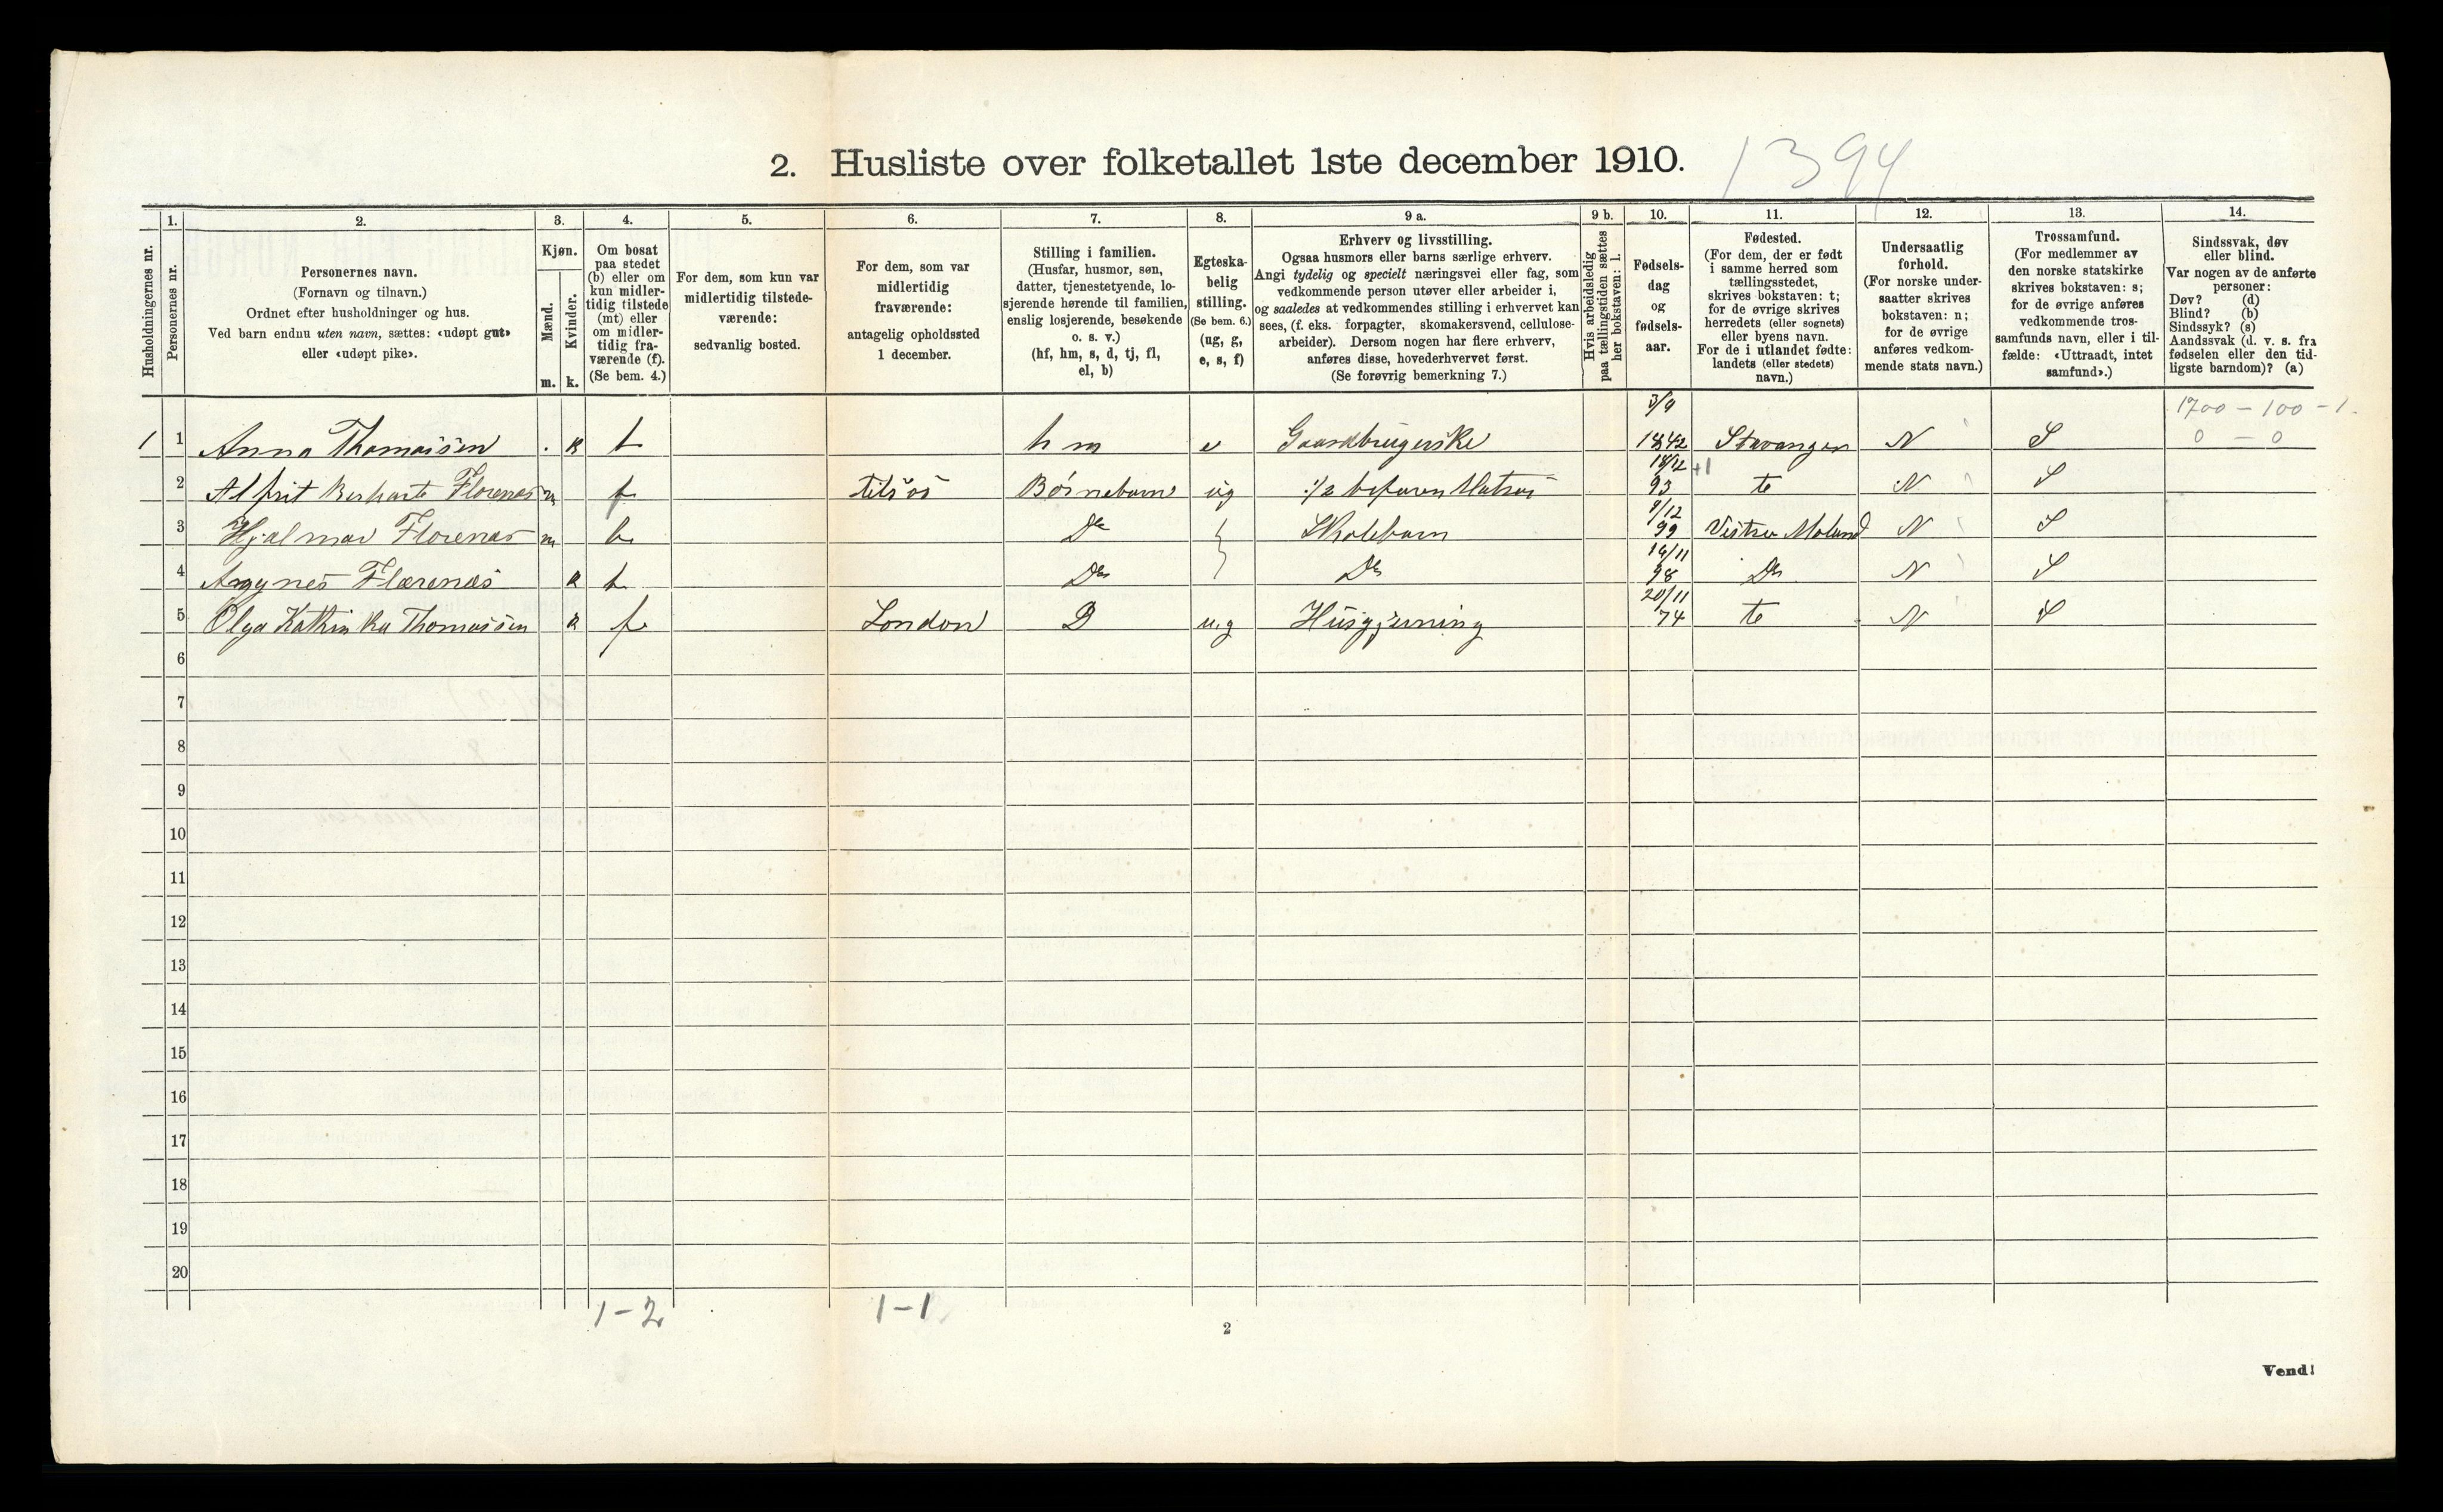 2. Husliste over folketallet 1ste december 1910. 1394
Husholdningernes nr.
1.
Personernes nr.
2.
Personernes navn.
(Fornavn og tilnavn.)
Ordnet efter husholdninger og hus.
Ved barn endnu uten navn, sættes: «udøpt gut»
eller «udøpt pike».
3.
Kjøn.
Mænd.
Kvinder.
m. k.
4.
Om bosat
paa stedet
(b) eller om
kun midler-
tidig tilstede
(mt) eller
om midler-
tidig fra-
værende (f).
(Se bem. 4.)
5.
For dem, som kun var
midlertidig tilstede-
værende:
sedvanlig bosted.
6.
For dem, som var
midlertidig
fraværende:
antagelig opholdssted
1 december.
7.
Stilling i familien.
(Husfar, husmor, søn,
datter, tjenestetyende, lo-
sjerende hørende til familien,
enslig losjerende, besøkende
o. s. v.)
(hf, hm, s, d, tj, fl,
el, b)
8.
Egteska-
belig
stilling.
(Se bem. 6.)
(ug, g,
e, s, f)
9 a.
Erhverv og livsstilling.
Ogsaa husmors eller barns særlige erhverv.
Angi tydelig og specielt næringsvei eller fag, som
vedkommende person utøver eller arbeider i,
og saaledes at vedkommendes stilling i erhvervet kan
sees, (f. eks. forpagter, skomakersvend, cellulose-
arbeider). Dersom nogen har flere erhverv,
anføres disse, hovederhvervet først.
(Se forøvrig bemerkning 7.)
9 b.
Hvis arbeidsledig
paa tællingstiden sættes
her bokstaven: l.
10.
Fødsels-
dag
og
fødsels-
aar.
11.
Fødested.
(For dem, der er født
i samme herred som
tællingsstedet,
skrives bokstaven: t;
for de øvrige skrives
herredets (eller sognets)
eller byens navn.
For de i utlandet fødte:
landets (eller stedets)
navn.)
12.
Undersaatlig
forhold.
(For norske under-
saatter skrives
bokstaven: n;
for de øvrige
anføres vedkom-
mende stats navn.)
13.
Trossamfund.
(For medlemmer av
den norske statskirke
skrives bokstaven: s;
for de øvrige anføres
vedkommende tros-
samfunds navn, eller i til-
fælde: «Uttraadt, intet
samfund».)
14.
Sindssvak, døv
eller blind.
Var nogen av de anførte
personer:
Døv? (d)
Blind? (b)
Sindssyk? (s)
Aandssvak (d. v. s. fra
fødselen eller den tid-
ligste barndom)? (a)
1700 – 100 – 1.
0 – 0
1 1 Anna Thomassen k b hm e Gaardbrugerske 3/9 1842 Stavanger N S
2 Alfrit Florenæs m f tilsøs Børnebarn ug 1/2 befaren Matros 18/12 93 +1 te N S
3 Hjalmar Florenæs m b Do Skolebarn 9/12 99 Vestre Moland N S
4 Agynes Florenæs k b Do Do 98 Do N S
5 Olga Kathinka Thomassen k f London D ug Husgjerning 20/11 74 te N S
6
7
8
9
10
11
12
13
14
15
16
17
18
19
20
1–2 1–1
2
Vend!